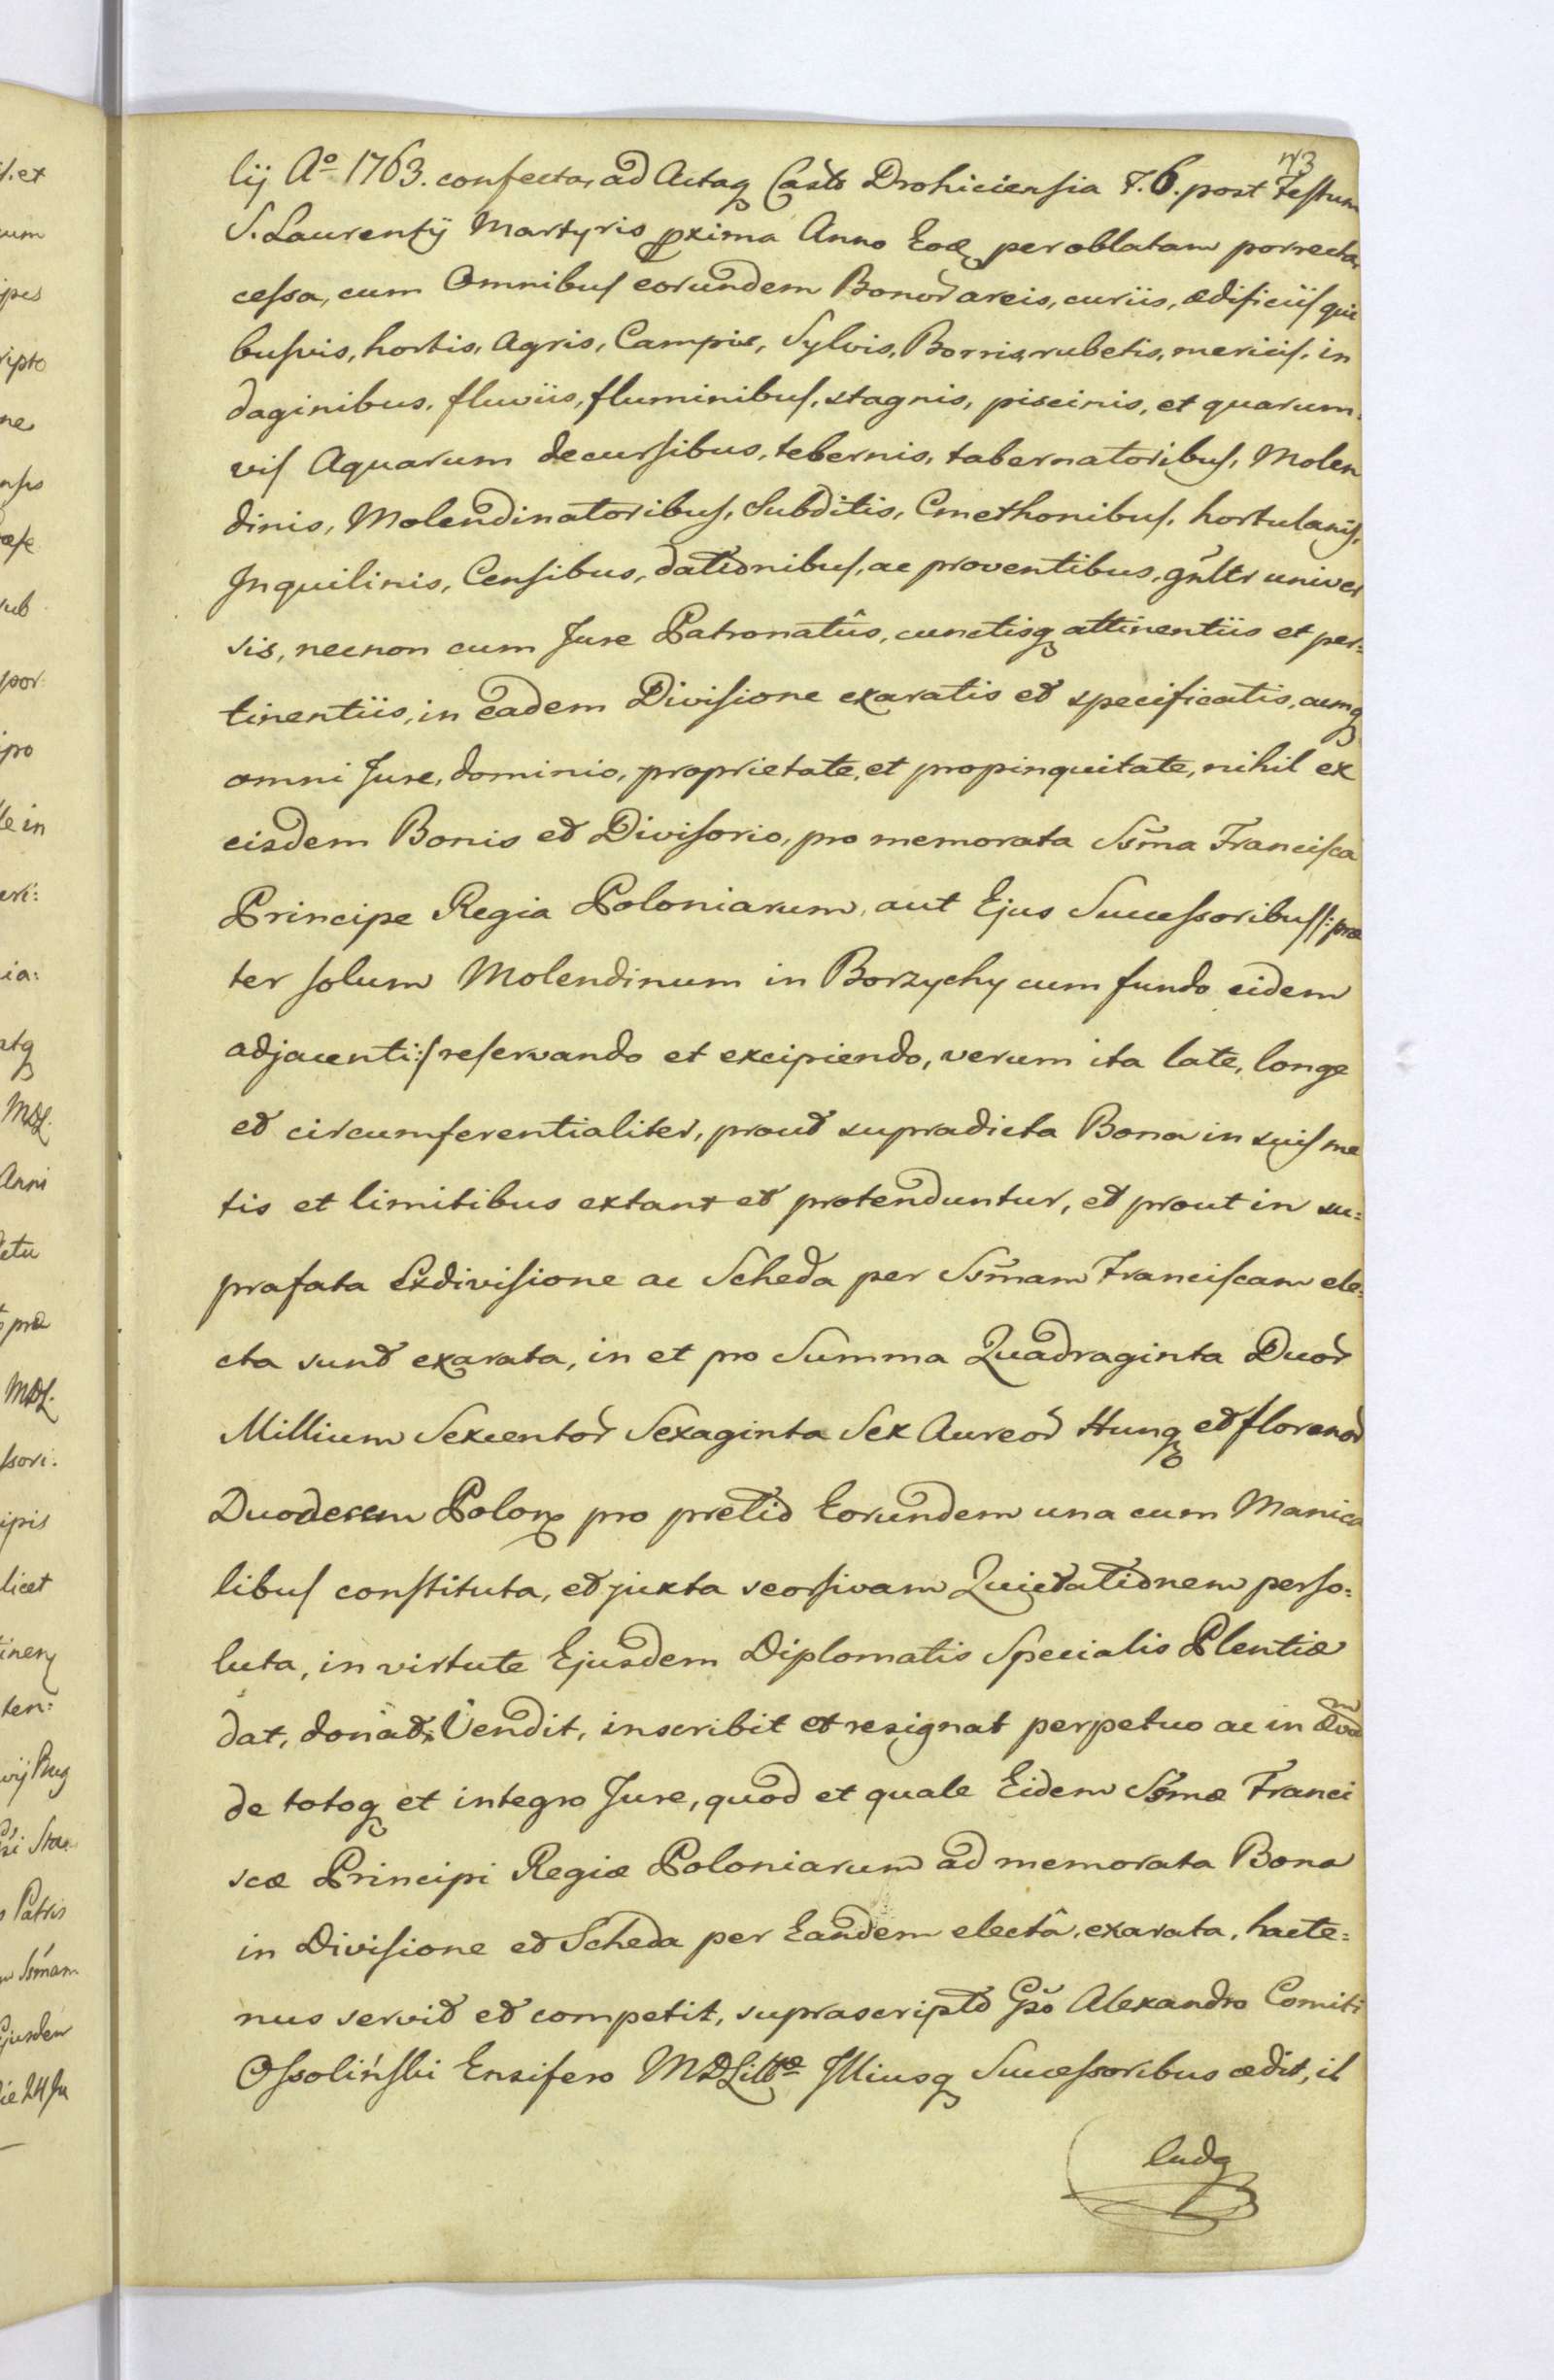 73
lij Aº 1763. confecta, ad Actaq Casts Drohiciensia F. 6. post Festum
S. Laurentij Martyris pxima Anno Eoq per oblatam porrecta,
cessa, cum Omnibus eorundem Bonor areis, curiis, ædificiis qui
busvis, hortis, Agris, Campis, Sylvis, Borris, rubetis, mericis, in
daginibus, fluviis, fluminibus, stagnis, piscinis, et quarum:
vis Aquarum decursibus, tebernis, tabernatoribus, Molen
dinis, Molendinatoribus, Subditis, Cmethonibus, hortulanis,
Inquilinis, Censibus, dationibus, ac proventibus, gnltr univer
sis, necnon cum Jure Patronatûs, cunctisq attinentiis et per=
tinentiis, in eadem Divisione exaratis et specificatis, acumq
omni Jure, dominio, proprietate, et propinquitate, nihil ex
eisdem Bonis et Divisorio, pro memorata Ssma Francisca
Principe Regia Poloniarum, aut Ejus Successoribus /: præ
ter solum Molendinum in Borzychy cum fundo eidem
adjacenti :/ reservando et excipiendo, verum ita late, longe
et circumferentialiter, prout supradicta Bona in suis me
tis et limitibus extant et protenduntur, et prout in su=
prafata Exdivisione ac Scheda per Ssmam Franciscam ele=
cta sunt exarata, in et pro Summa Quadraginta Duor
Millium Sexcentor Sexaginta Sex Aureor Hung et florenor
Duodecem Polon pro pretio Eorundem una cum Manica
libus constituta, et juxta seorsivam Quietationem perso=
luta, in virtute Ejusdem Diplomatis Specialis Plentiæ
dat, donat, Vendit, inscribit et resignat perpetuo ac in ævum
de totoq et integro Jure, quod et quale Eidem Ssmæ Franci
scæ Principi Regiæ Poloniarum ad memorata Bona
in Divisione et Scheda per Eandem electâ, exarata, hacte=
nus servit et competit, suprascripto Gso Alexandro Comiti
Ossoliński Ensifero MDLittæ Illiusq Successoribus cedit, il
ludq